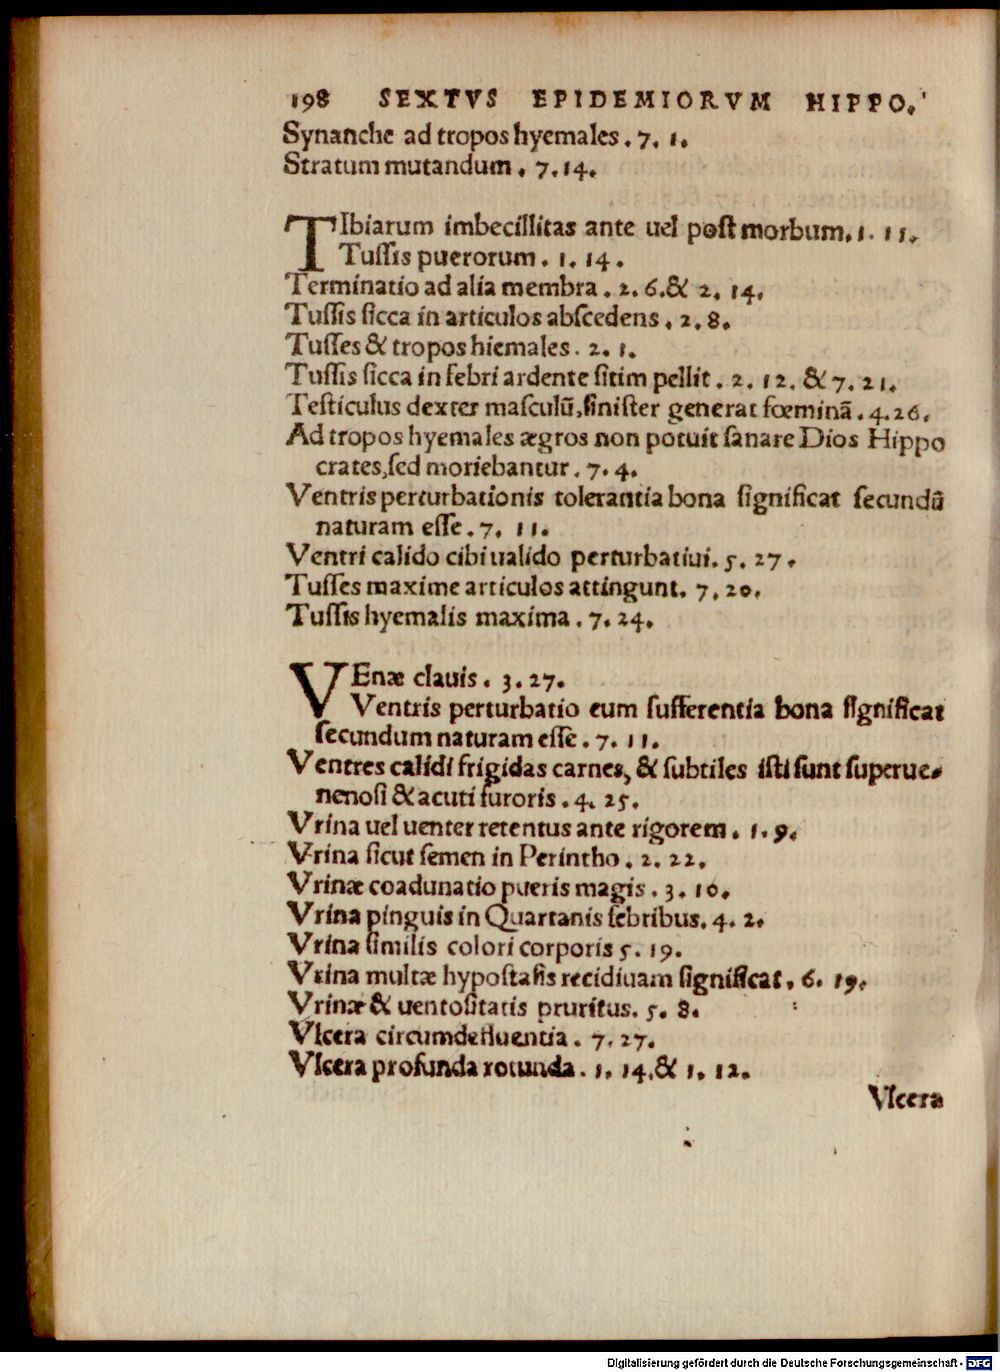 198 SEXTVS EPIDEMIORVM HIPPO.
Synanche ad tropos hyemales. 7. 1.
Stratum mutandum. 7. 14.
TIbiarum imbecillitas ante uel post morbum. 1. 11.
Tussis puerorum. 1. 14.
Terminatio ad alia membra. 2. 6. & 2. 14.
Tussis sicca in articulos abscedens. 2. 8.
Tusses & tropos hiemales. 2. 1.
Tussis sicca in febri ardente sitim pellit. 2. 12. & 7. 21.
Testiculus dexter masculũ, sinister generat fœminã. 4. 26.
Ad tropos hyemales ægros non potuit sanare Dios Hippo
crates, sed moriebantur. 7. 4.
Ventris perturbationis tolerantia bona significat secundũ
naturam esse. 7. 11.
Ventri calido cibi ualido perturbatiui. 5. 27.
Tusses maxime articulos attingunt. 7. 20.
Tussis hyemalis maxima. 7. 24.
VEnæ clauis. 3. 27.
Ventris perturbatio cum sufferentia bona significat
secundum naturam esse. 7. 11.
Ventres calidi frigidas carnes, & subtiles isti sunt superue-
nenosi & acuti furoris. 4. 25.
Vrina uel uenter retentus ante rigorem. 1. 9.
Vrina sicut semen in Perintho. 2. 22.
Vrinæ coadunatio pueris magis. 3. 10.
Vrina pinguis in Quartanis febribus. 4. 2.
Vrina similis colori corporis 5. 19.
Vrina multæ hypostasis recidiuam significat. 6. 19.
Vrinæ & uentositatis pruritus. 5. 8.
Vlcera circumdefluentia. 7. 27.
Vlcera profunda rotunda. 1. 14. & 1. 12.
Vlcera
Digitalisierung gefördert durch die Deutsche Forschungsgemeinschaft - DFG